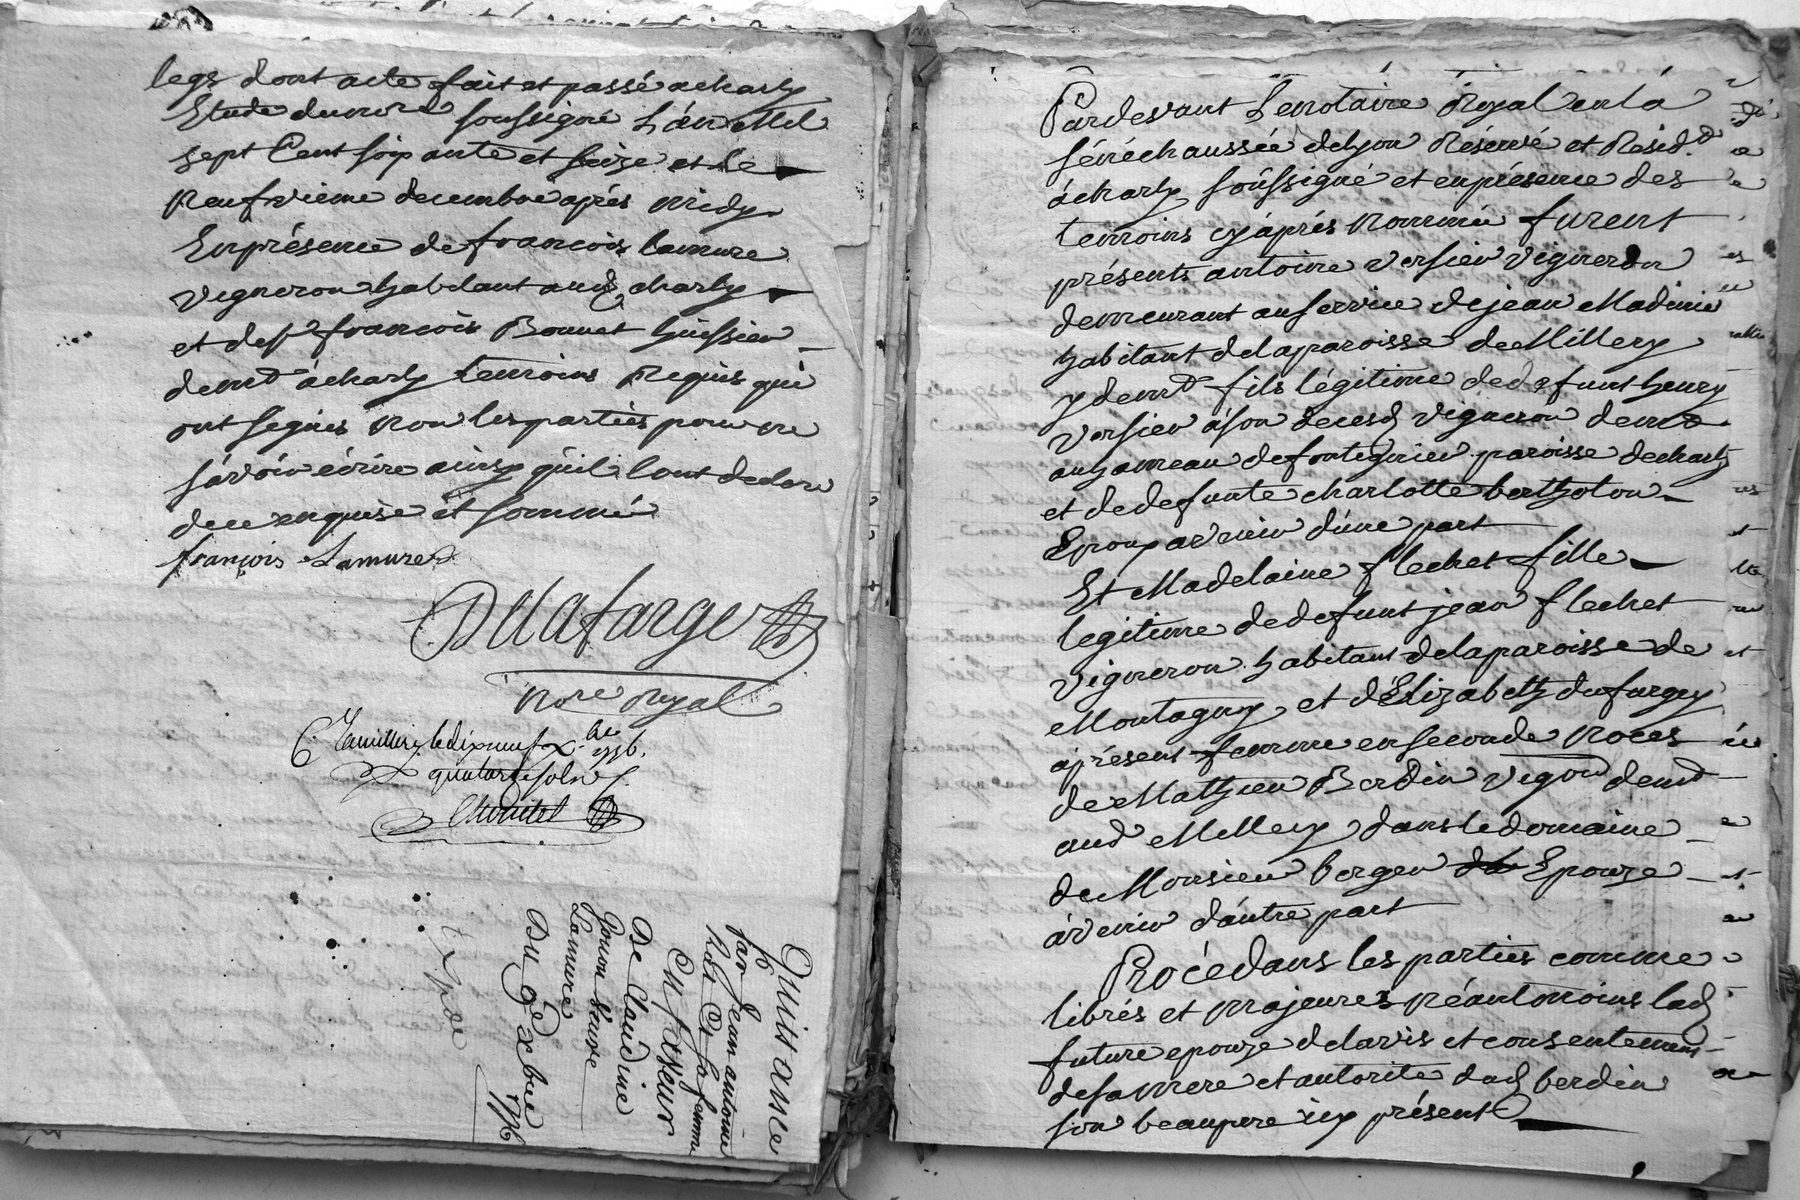 legs dont acte fait et passé a charly
Etude dunore soussigné L'an Mil
sept Cent soixante et seize et le
Neufvieme decembre aprés midy
En présence de françois lamure
vigneron habitant aud charly
et de sr françois Bonnet huissier
demt á charly temoins Requis qui
ont signés non les parties pour ne
sávoir écrire ainsy qu'il l'ont declaré
de ce enquise et sommé
françois Lamure
Dellafarge
Nore Royal
Cé Amillery le dix neuf xbre 1776.
quatorze sols
Quittance
par Jean antoine
et sa femme
En faveur
De Claudine
Gonon veuve
Lamure
Du 9e xbre
1776
Expée
Pardevant Le notaire Royal en lá
sénéchaussée de lyon Réservé et Residt
á charly soússigné et en présence des
temoins cy áprés nommé furent
présents antoine versier vigneron
demeurant au service de jean Madinié
habitant de la paroisse de Millery
y demt fils légitime de defunt henry
versier á son deces vigneron demt
au hameau de fontegnieu paroisse de charly
et de defunte charlotte bertholon
Epoux avenir d'une part
Et Madelaine flechet fille
legitime de defunt jean flechet
vigneron habitant de la paroisse de
Montagny et d'Elizabeth dufargey
á présent femme en seconde noces
de Mathieu Berdin vigon demt
aud Millery dans le domaine
de Monsieur berger Epouze
ávenir d'áutre part
Procédans les parties comme
librés et majeures néantmoins lad
future epouze de lavis et consentement
de sa mere et autorité dud berdin
son beaupere icy présent